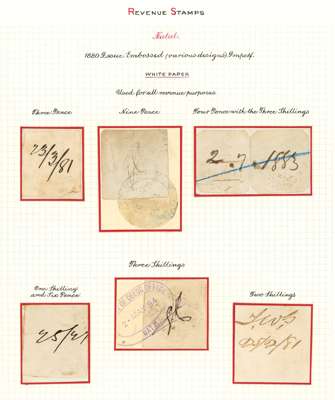 REVENUE STAMPS
Natal.
1880 Issue. Embossed (various designs) Imperf.
WHITE PAPER
Used for all revenue purposes
Three Pence
Nine Pence
Four Pence with the Three Shillings
23/3/81
2 . 7 . 1883
Three Shillings
One Shilling
and Six Pence
Two Shillings
25/